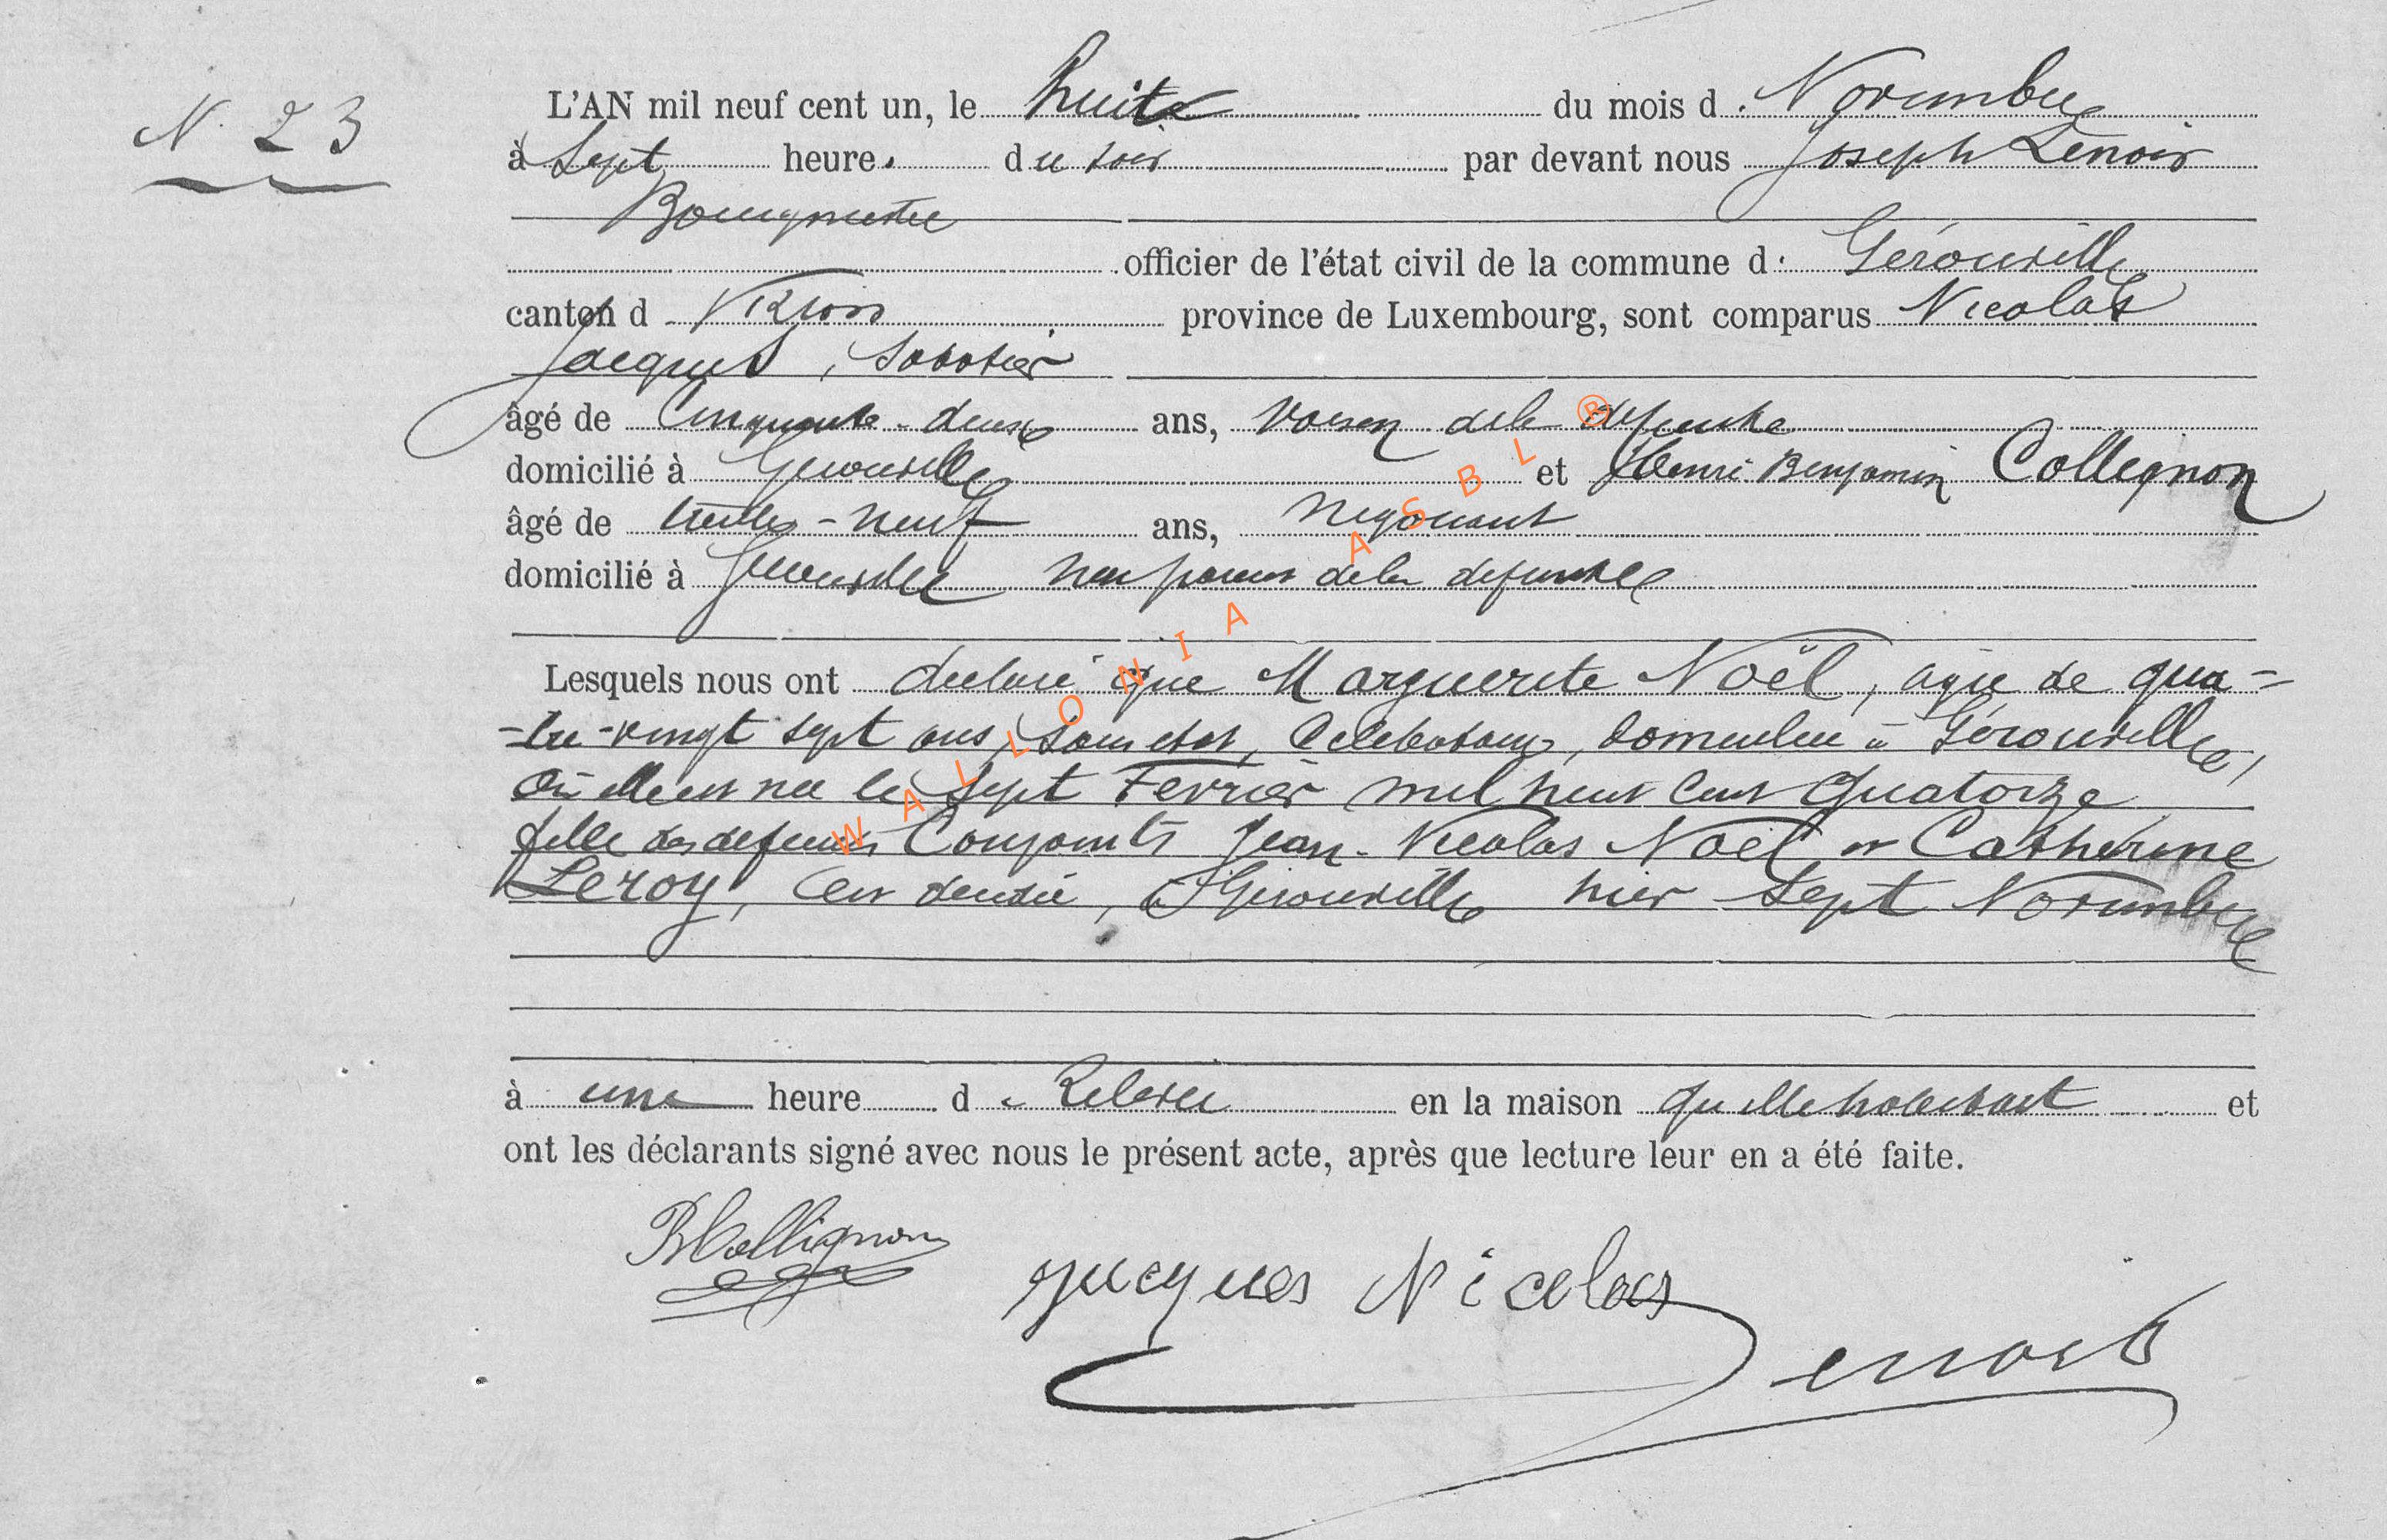 N. 23
L'AN mil neuf cent un, le huit du mois de Novembre
à Sept heures du soir par devant nous Joseph Lenoir
Bourgmestre
officier de l'état civil de la commune de Gérouville
canton d Virton province de Luxembourg, sont comparus Nicolas
Jacques, Sabotier
âgé de Cinquante-deux ans, voisin dela défunte
domicilié à Gérouville et Henri Benjamin Collignon
âgé de trente-neuf ans, Négociant
domicilié à Gérouville non parent dela défunte
Lesquels nous ont déclaré que Marguerite Noël, agée de qua-
-tre-vingt sept ans, Sans état, Célibataire, domiciliée à Gérouville,
où elle est née le Sept Février mil huit cent quatorze
fille des défunts Conjoints Jean-Nicolas Noël et Catherine
Leroy, est décédée, à Gérouville hier Sept Novembre
à une heure d e Relevée en la maison qu'elle habitait et
ont les déclarants signé avec nous le présent acte, après que lecture leur en a été faite.
BCollignon Jacques Nicolas
Lenoir
WALLONIA ASBL ®